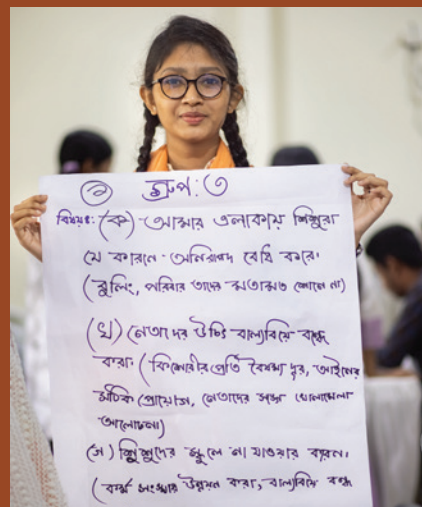 ১ গ্রুপ: ৩
বিষয়ঃ (ক) আমার এলাকায় শিশুরা
যে কারনে অনিরাপদ বোধ করে।
(বুলিং, পরিবার তাদের মতামত শোনে না)
(খ) নেতাদের উচিৎ বাল্যবিয়ে বন্ধ
করা। (কিশোরীর প্রতি বৈষম্য দূর, আইনের
সঠিক প্রয়োগ, নেতাদের সঙ্গে খোলামেলা
আলোচনা)
(গ) শিশুদের স্কুলে না যাওয়ার কারন।
(কর্ম সংস্থান উন্নয়ন করা, বাল্যবিয়ে বন্ধ